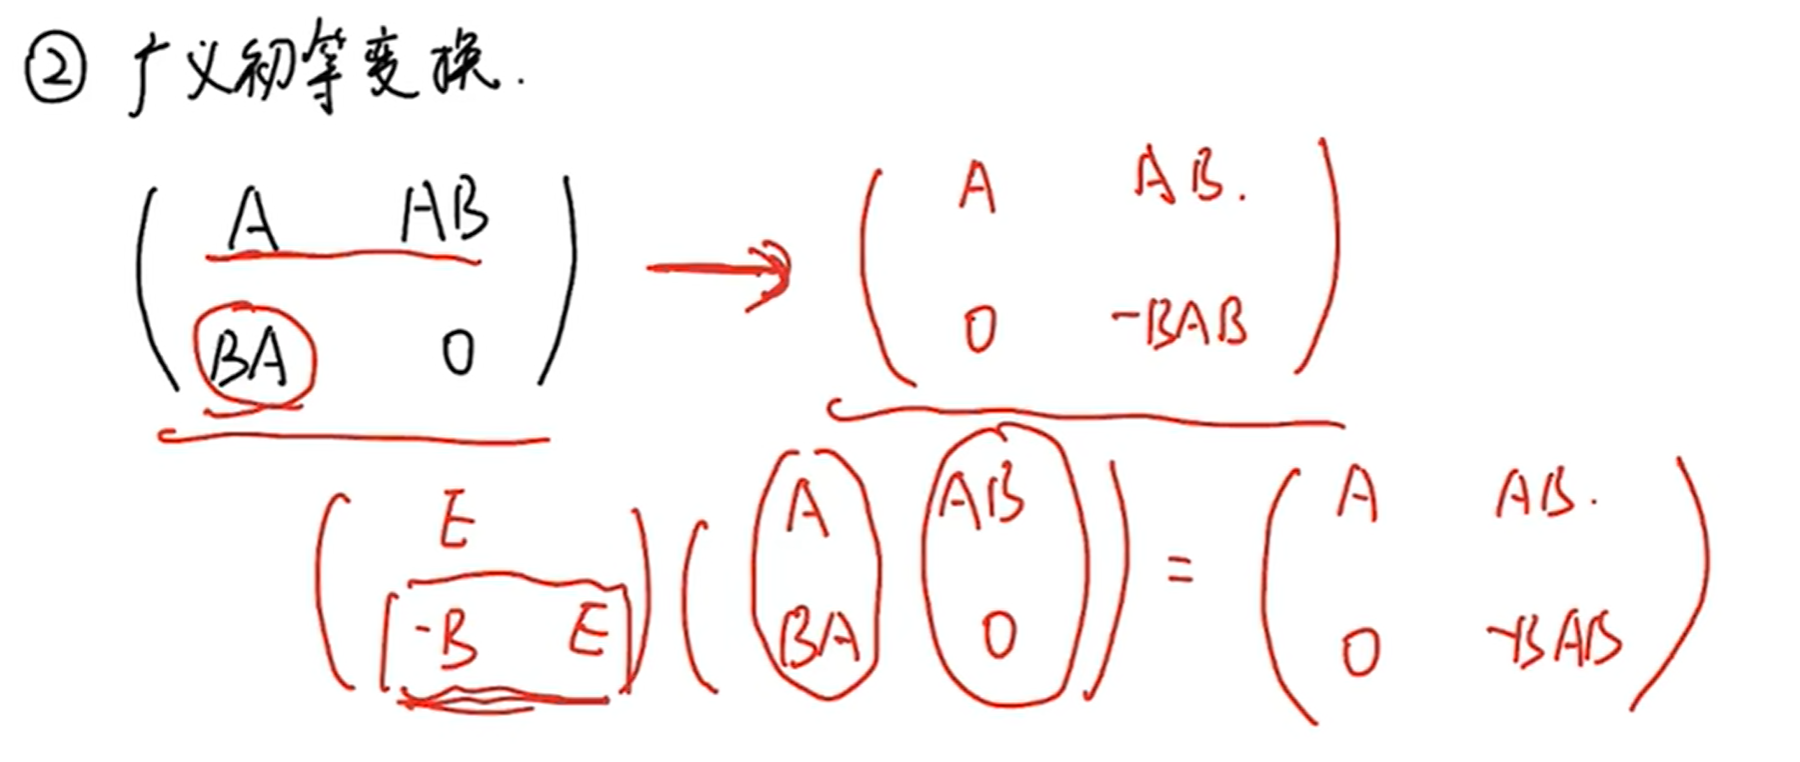 ② 广义初等变换.
( A AB
BA 0 ) → ( A AB.
0 -BAB )
( E
-B E ) ( A AB
BA 0 ) = ( A AB.
0 -BAB )